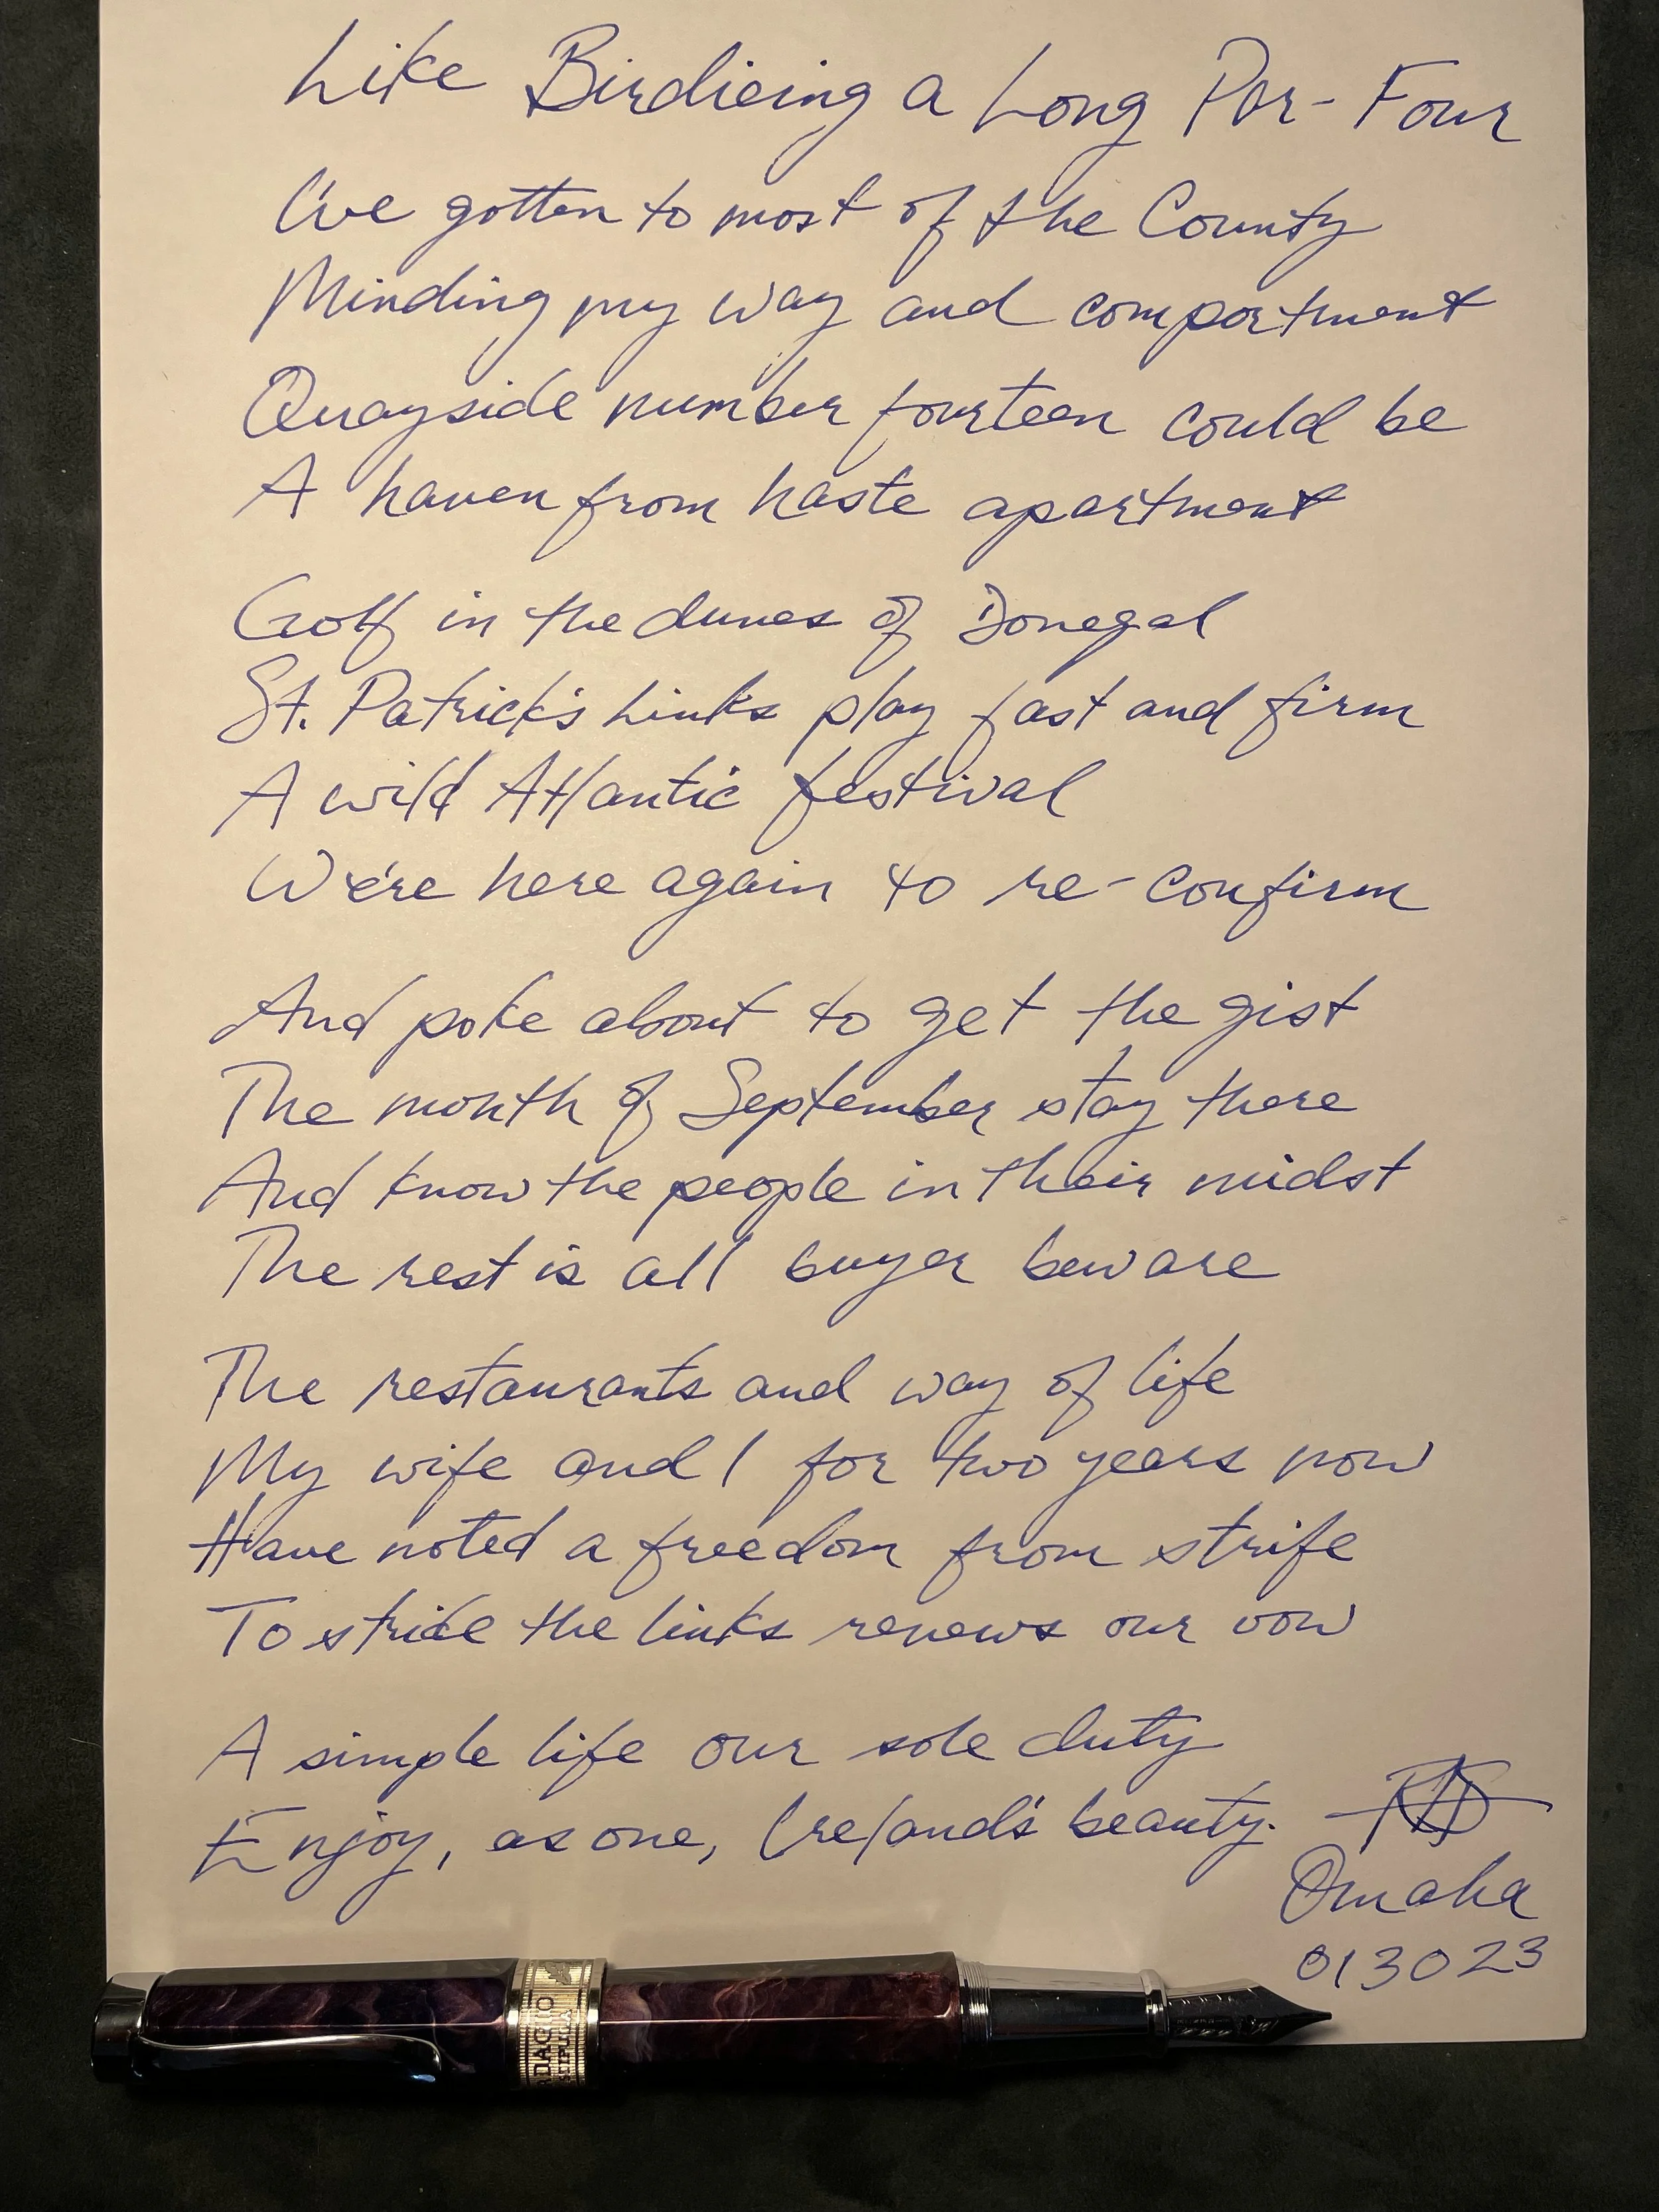 Like Birdieing a Long Par-Four
I've gotten to most of the County
Minding my way and comportment
Quayside number fourteen could be
A haven from haste apartment
Golf in the dunes of Donegal
St. Patrick's Links play fast and firm
A wild Atlantic festival
We're here again to re-confirm
And poke about to get the gist
The month of September stay there
And know the people in their midst
The rest is all buyer beware
The restaurants and way of life
My wife and I for two years now
Have noted a freedom from strife
To stride the links renews our vow
A simple life our sole duty
Enjoy, as one, Ireland's beauty.
Omaha
013023